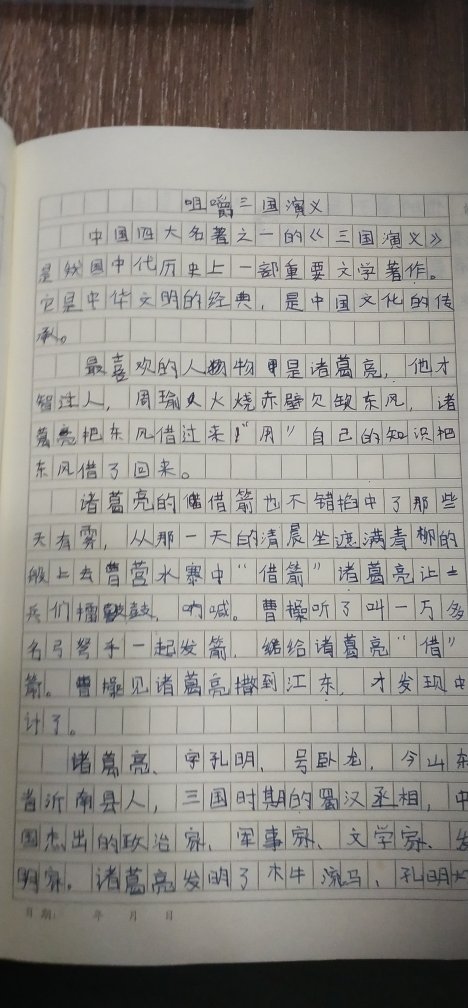 咀嚼三国演义
中国四大名著之一的《三国演义》
是我国中代历史上一部重要文学著作。
它是中华文明的经典，是中国文化的传
承。
最喜欢的人物是诸葛亮，他才
智过人，周瑜火烧赤壁欠缺东风，诸
葛亮把东风借过来！"用"自己的知识把
东风借了回来。
诸葛亮的借箭也不错掐中了那些
天有雾，从那一天的清晨坐遮满青柳的
船上去曹营水寨中"借箭"诸葛亮让士
兵们擂鼓，呐喊。曹操听了叫一万多
名弓弩手一起发箭，给诸葛亮"借"
箭。曹操见诸葛亮撤到江东，才发现中
计了。
诸葛亮、字孔明、号卧龙，今山东
省沂南县人，三国时期的蜀汉丞相，中
国杰出的政治家、军事家、文学家、发
明家。诸葛亮发明了木牛流马、孔明
日期： 年 月 日